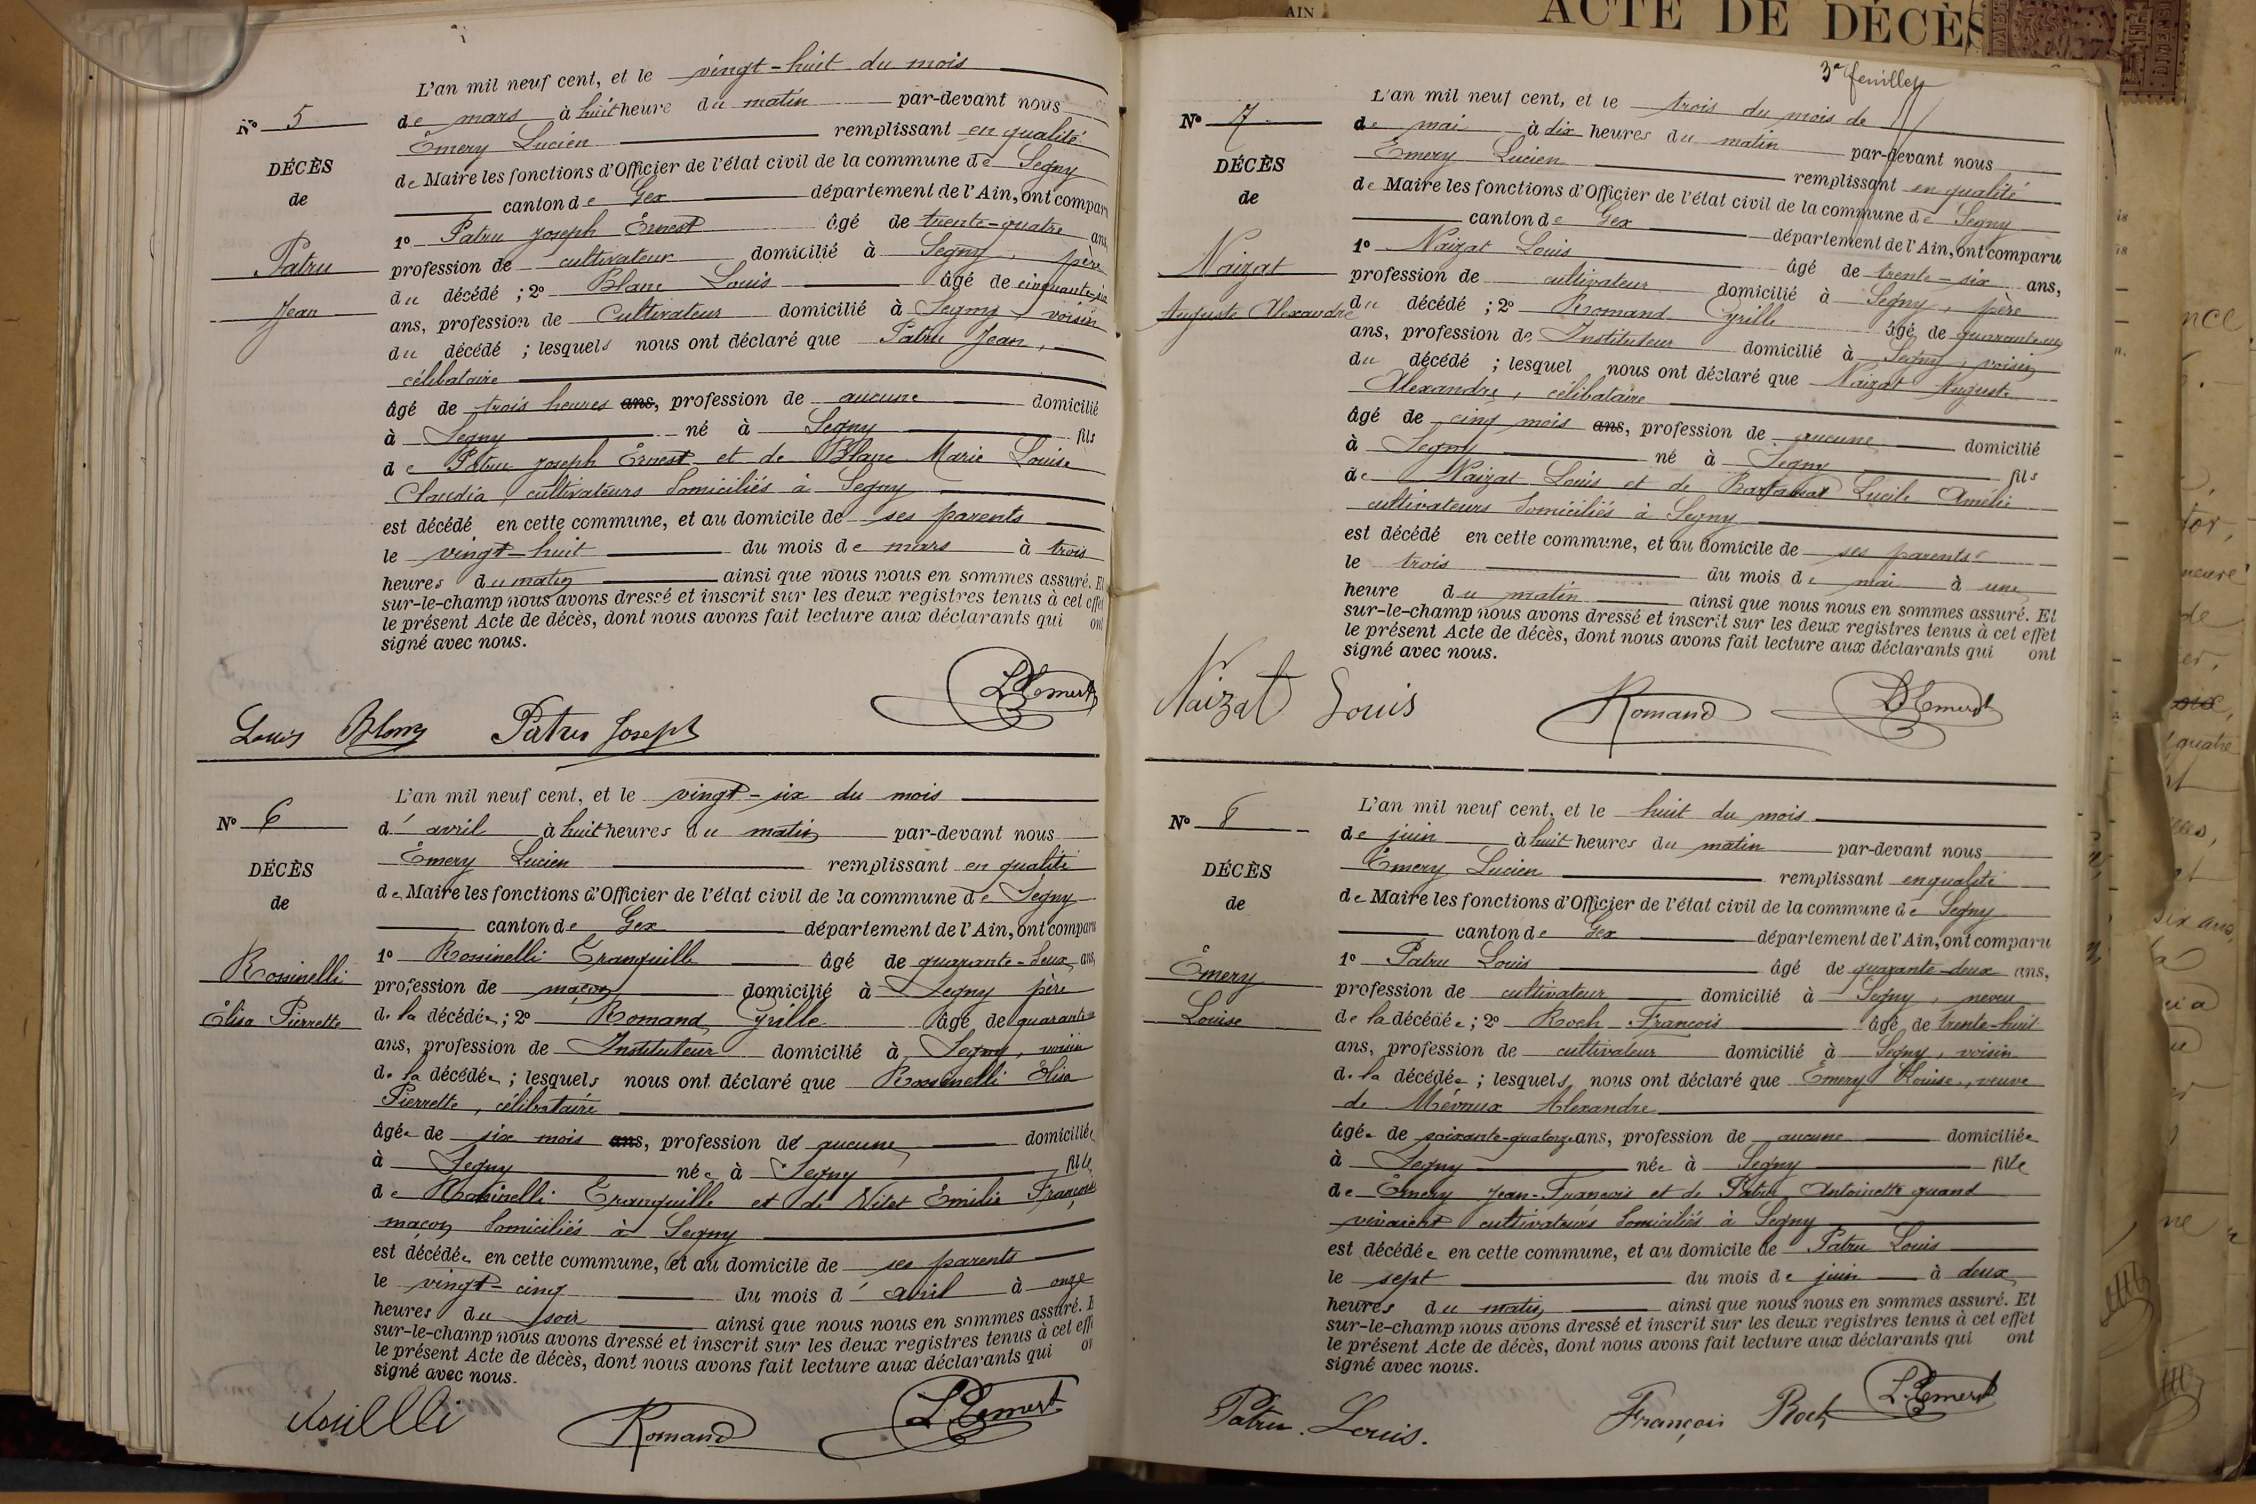 AIN
ACTE DE DÉCÈS
L'an mil neuf cent, et le vingt-huit du mois
N° 5
de mars à huit heure du matin par-devant nous
Émery Lucien remplissant en qualité
DÉCÈS
de Maire les fonctions d'Officier de l'état civil de la commune de Segny
de
canton de Gex département de l'Ain, ont comparu
1° Patru Joseph Ernest âgé de trente-quatre ans,
Patru
profession de cultivateur domicilié à Segny, père
du décédé ; 2° Blanc Louis âgé de cinquante-six
Jean
ans, profession de Cultivateur domicilié à Segny, voisin
du décédé ; lesquels nous ont déclaré que Patru Jean,
célibataire
âgé de trois heures ans, profession de aucune domicilié
à Segny né à Segny fils
de Patru Joseph Ernest et de Blanc Marie Louise
Claudia, cultivateurs domiciliés à Segny
est décédé en cette commune, et au domicile de ses parents
le vingt-huit du mois de mars à trois
heures du matin ainsi que nous nous en sommes assuré. Et
sur-le-champ nous avons dressé et inscrit sur les deux registres tenus à cet effet
le présent Acte de décès, dont nous avons fait lecture aux déclarants qui ont
signé avec nous.
L Emery
Louis Blanc Patru Joseph
L'an mil neuf cent, et le vingt-six du mois
N° 6
d'avril à huit heures du matin par-devant nous
Émery Lucien remplissant en qualité
DÉCÈS
de Maire les fonctions d'Officier de l'état civil de la commune de Segny
de
canton de Gex département de l'Ain, ont comparu
1° Rossinelli Tranquille âgé de quarante-deux ans,
Rossinelli
profession de maçon domicilié à Segny père
Élisa Pierrette
de la décédée ; 2° Romand Cyrille âgé de quarante
ans, profession de Instituteur domicilié à Segny, voisin
de la décédée ; lesquels nous ont déclaré que Rossinelli Élisa
Pierrette, célibataire
âgée de six mois ans, profession de aucune domiciliée
à Segny née à Segny fille
de Rossinelli Tranquille et de Vitet Émilie Françoise
maçon domiciliés à Segny
est décédée en cette commune, et au domicile de ses parents
le vingt-cinq du mois d'avril à onze
heures du soir ainsi que nous nous en sommes assuré. E
sur-le-champ nous avons dressé et inscrit sur les deux registres tenus à cet eff
le présent Acte de décès, dont nous avons fait lecture aux déclarants qui o
signé avec nous.
Romand L Emery
3e feuillet
L'an mil neuf cent, et le trois du mois de
N° 7
de mai à dix heures du matin par-devant nous
Émery Lucien remplissant en qualité
DÉCÈS
de Maire les fonctions d'Officier de l'état civil de la commune de Segny
de
canton de Gex département de l'Ain, ont comparu
1° Naizat Louis âgé de trente-six ans,
Naizat
profession de cultivateur domicilié à Segny, père
Auguste Alexandre
du décédé ; 2° Romand Cyrille âgé de quarante
ans, profession de Instituteur domicilié à Segny, voisin
du décédé ; lesquel nous ont déclaré que Naizat Auguste
Alexandre, célibataire
âgé de cinq mois ans, profession de aucune domicilié
à Segny né à Segny fils
de Naizat Louis et de Lucile Amélie
cultivateurs domiciliés à Segny
est décédé en cette commune, et au domicile de ses parents
le trois du mois de mai à une
heure du matin ainsi que nous nous en sommes assuré. Et
sur-le-champ nous avons dressé et inscrit sur les deux registres tenus à cet effet
le présent Acte de décès, dont nous avons fait lecture aux déclarants qui ont
signé avec nous.
Naizat Louis Romand L Emery
L'an mil neuf cent, et le huit du mois
N° 8
de juin à huit heures du matin par-devant nous
Émery Lucien remplissant en qualité
DÉCÈS
de Maire les fonctions d'Officier de l'état civil de la commune de Segny
de
canton de Gex département de l'Ain, ont comparu
1° Patru Louis âgé de quarante-deux ans,
Émery
profession de cultivateur domicilié à Segny, neveu
Louise
de la décédée ; 2° Roch François âgé de trente-huit
ans, profession de cultivateur domicilié à Segny, voisin
de la décédée ; lesquels nous ont déclaré que Émery Louise, veuve
de Mévaux Alexandre
âgée de soixante-quatorze ans, profession de aucune domiciliée
à Segny née à Segny fille
de Émery Jean-François et de Patru Antoinette quand
vivaient cultivateurs domiciliés à Segny
est décédée en cette commune, et au domicile de Patru Louis
le sept du mois de juin à deux
heures du matin ainsi que nous nous en sommes assuré. Et
sur-le-champ nous avons dressé et inscrit sur les deux registres tenus à cet effet
le présent Acte de décès, dont nous avons fait lecture aux déclarants qui ont
signé avec nous.
Patru Louis. François Roch L. Emery